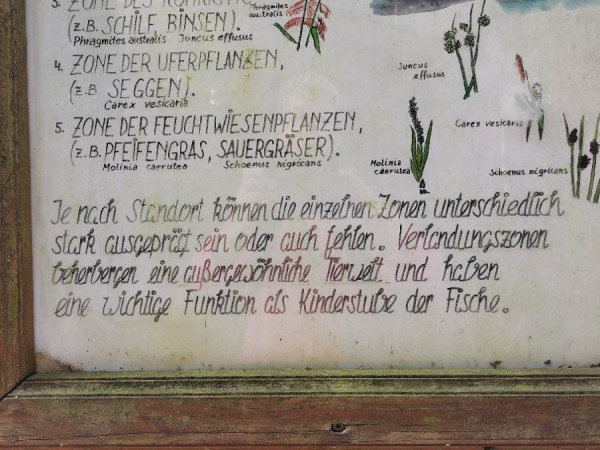 3. ZONE DES RÖHRICHTS
(z.B. SCHILF BINSEN).
Phragmites australis Juncus effusus
4. ZONE DER UFERPFLANZEN,
(z.B SEGGEN).
Carex vesicaria
5. ZONE DER FEUCHTWIESENPFLANZEN,
(z.B. PFEIFENGRAS, SAUERGRÄSER).
Molinia caerutea Schoenus nigricans
Phragmites
australis
Juncus
effusus
Carex vesicaria
Molinia
caerutea
Schoenus nigricans
Je nach Standort können die einzelnen Zonen unterschiedlich
stark ausgeprägt sein oder auch fehlen. Verlandungszonen
beherbergen eine außergewöhnliche Tierwelt und haben
eine wichtige Funktion als Kinderstube der Fische.